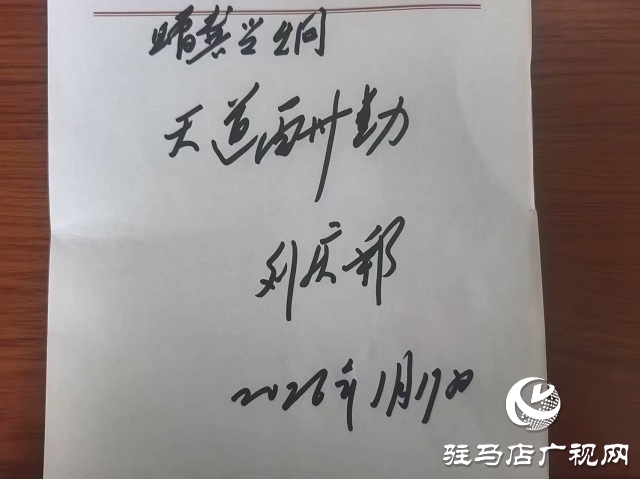 天道酬勤
刘庆邦
2026年1月17日
驻马店广视网